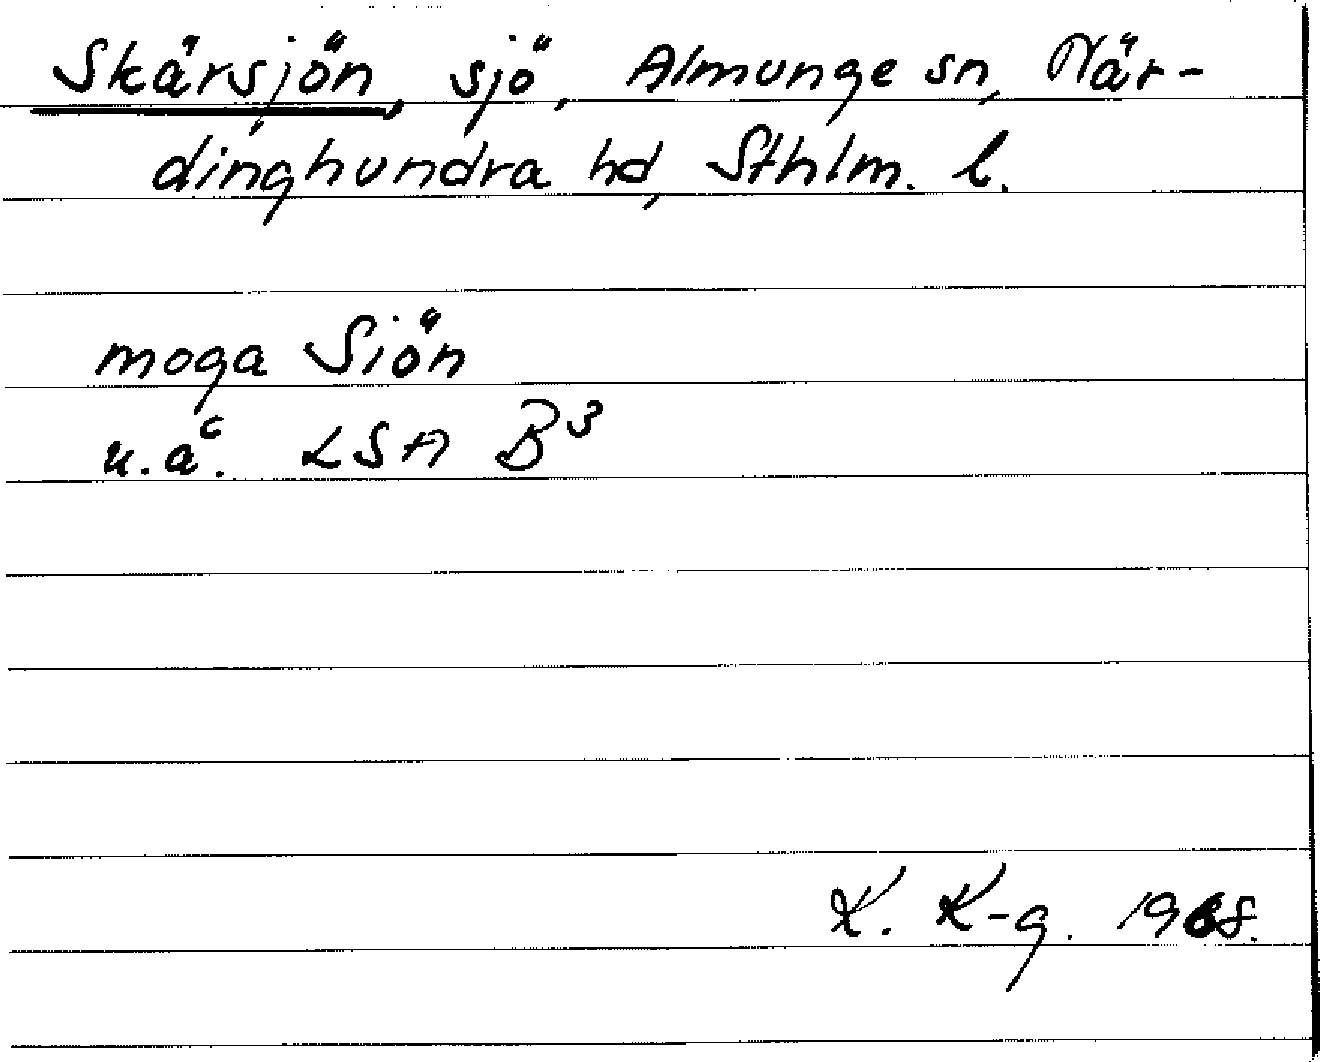 Skärsjön, sjö, Almunge sn, När-
dinghundra hd, Sthlm. l.
moga Siön
u.å. LSA B³
K. K-g. 1968.